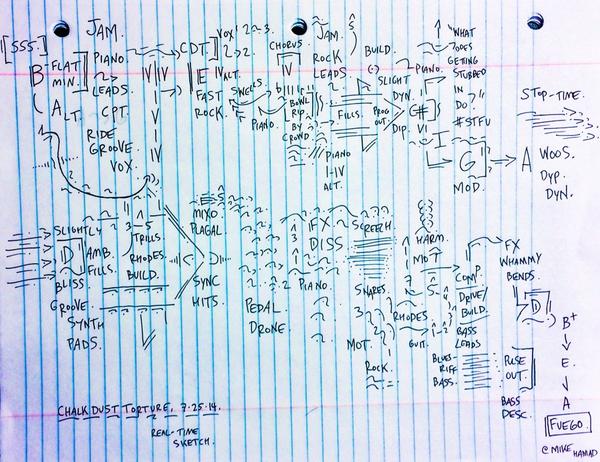 [555.
B-FLAT
MIN.
ALT.
JAM.
PIANO.
LEADS.
CPT.
RIDE
GROOVE.
VOX.
IV IV
V
I
V
IV
CDT
VOX
IV
ALT.
FAST
ROCK.
SWELLS
PIANO.
CHORUS.
IV
BOWL
RIP
BY
CROWD.
PIANO
I-IV
ALT.
JAM.
ROCK
LEADS.
FILLS.
BUILD.
SLIGHT
DYN.
PROG
OUT.
DIP.
PIANO.
G#
VI
I
"WHAT
GETING
STUBBED
IN
DO?"
#STFU
G
MOD.
A
STOP-TIME.
WOOS.
DYP.
DYN.
SLIGHTLY
D
AMB.
FILLS.
BLISS
GROOVE
SYNTH
PADS.
TRILLS.
RHODES.
BUILD.
MIXO.
PLAGAL
D
SYNC
HITS.
PEDAL
DRONE.
FX
DISS
PIANO.
SCREECH
SNARES.
MOT.
ROCK.
HARM.
MOT
RHODES
GUIT.
COMP.
DRIVE/
BUILD.
BASS
LEADS
BLUES
RIFF
BASS.
FX
WHAMMY
BENDS.
D
RISE
OUT.
BASS
DESC.
B+
E.
A
FUEGO.
CHALK DUST TORTURE, 7-25-14.
REAL-TIME
SKETCH.
@MIKE HAMAD